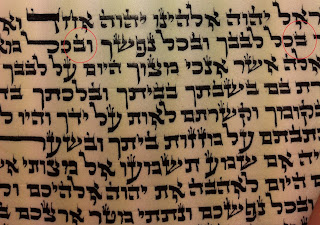 ראל יהוה אלהינו יהוה אחד
בכל לבבך ובכל נפשך ובכל
אשר אנכי מצוך היום על לבבך
בם בשבתך בביתך ובלכתך
בקומך וקשרתם לאות על ידך והיו
כתבתם על מזזות ביתך ובשע
יה אם שמע תשמעו אל מצותי
היום לאהבה את יהוה אלהיכם
ובכל נפשכם ונתתי מטר ארצכם